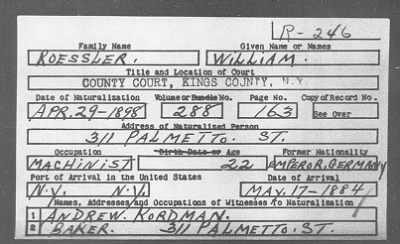 R-246
Family Name Given Name or Names
ROESSLER. WILLIAM.
Title and Location of Court
COUNTY COURT, KINGS COUNTY, N.Y
Date of Naturalization Volume or Bundle No. Page No. Copy of Record No.
APR. 29-1898 288 163 See Over
Address of Naturalized Person
311 PALMETTO. ST.
Occupation Birth Date or Age Former Nationality
MACHINIST 22 EMPEROR, GERMANY
Port of Arrival in the United States Date of Arrival
N.Y. N.Y. MAY. 17-1884
Names, Addresses and Occupations of Witnesses to Naturalization
1 ANDREW. KORDMAN.
2 BAKER. 311 PALMETTO. ST.